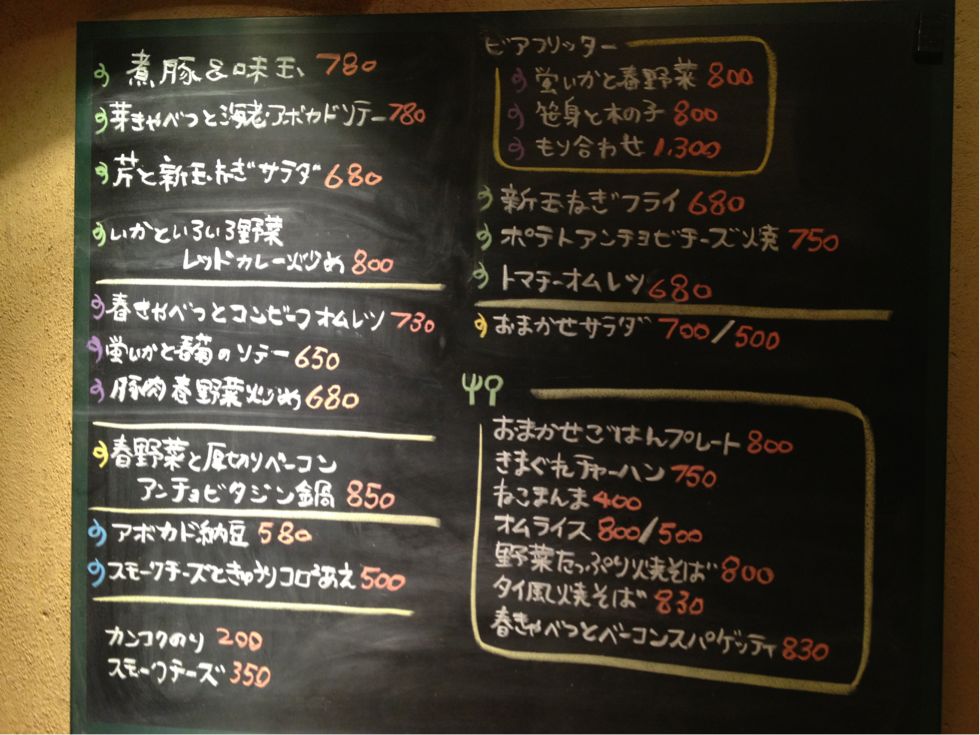 煮豚&味玉 780
芽きゃべつと海老・アボカドソテー 780
芹と新玉ねぎサラダ 680
いかといろいろ野菜
レッドカレー炒め 800
春きゃべつとコンビーフオムレツ 730
蛍いかと春菊のソテー 650
豚肉春野菜炒め 680
春野菜と厚切りベーコン
アンチョビタジン鍋 850
アボカド納豆 580
スモークチーズときゅうりコロコロあえ 500
カンコクのり 200
スモークチーズ 350
ビアフリッター
蛍いかと春野菜 800
笹身と木の子 800
もり合わせ 1,300
新玉ねぎフライ 680
ポテトアンチョビチーズ焼 750
トマチーオムレツ 680
おまかせサラダ 700/500
おまかせごはんプレート 800
きまぐれチャーハン 750
ねこまんま 400
オムライス 800/500
野菜たっぷり焼そば 800
タイ風焼そば 830
春きゃべつとベーコンスパゲッティ 830